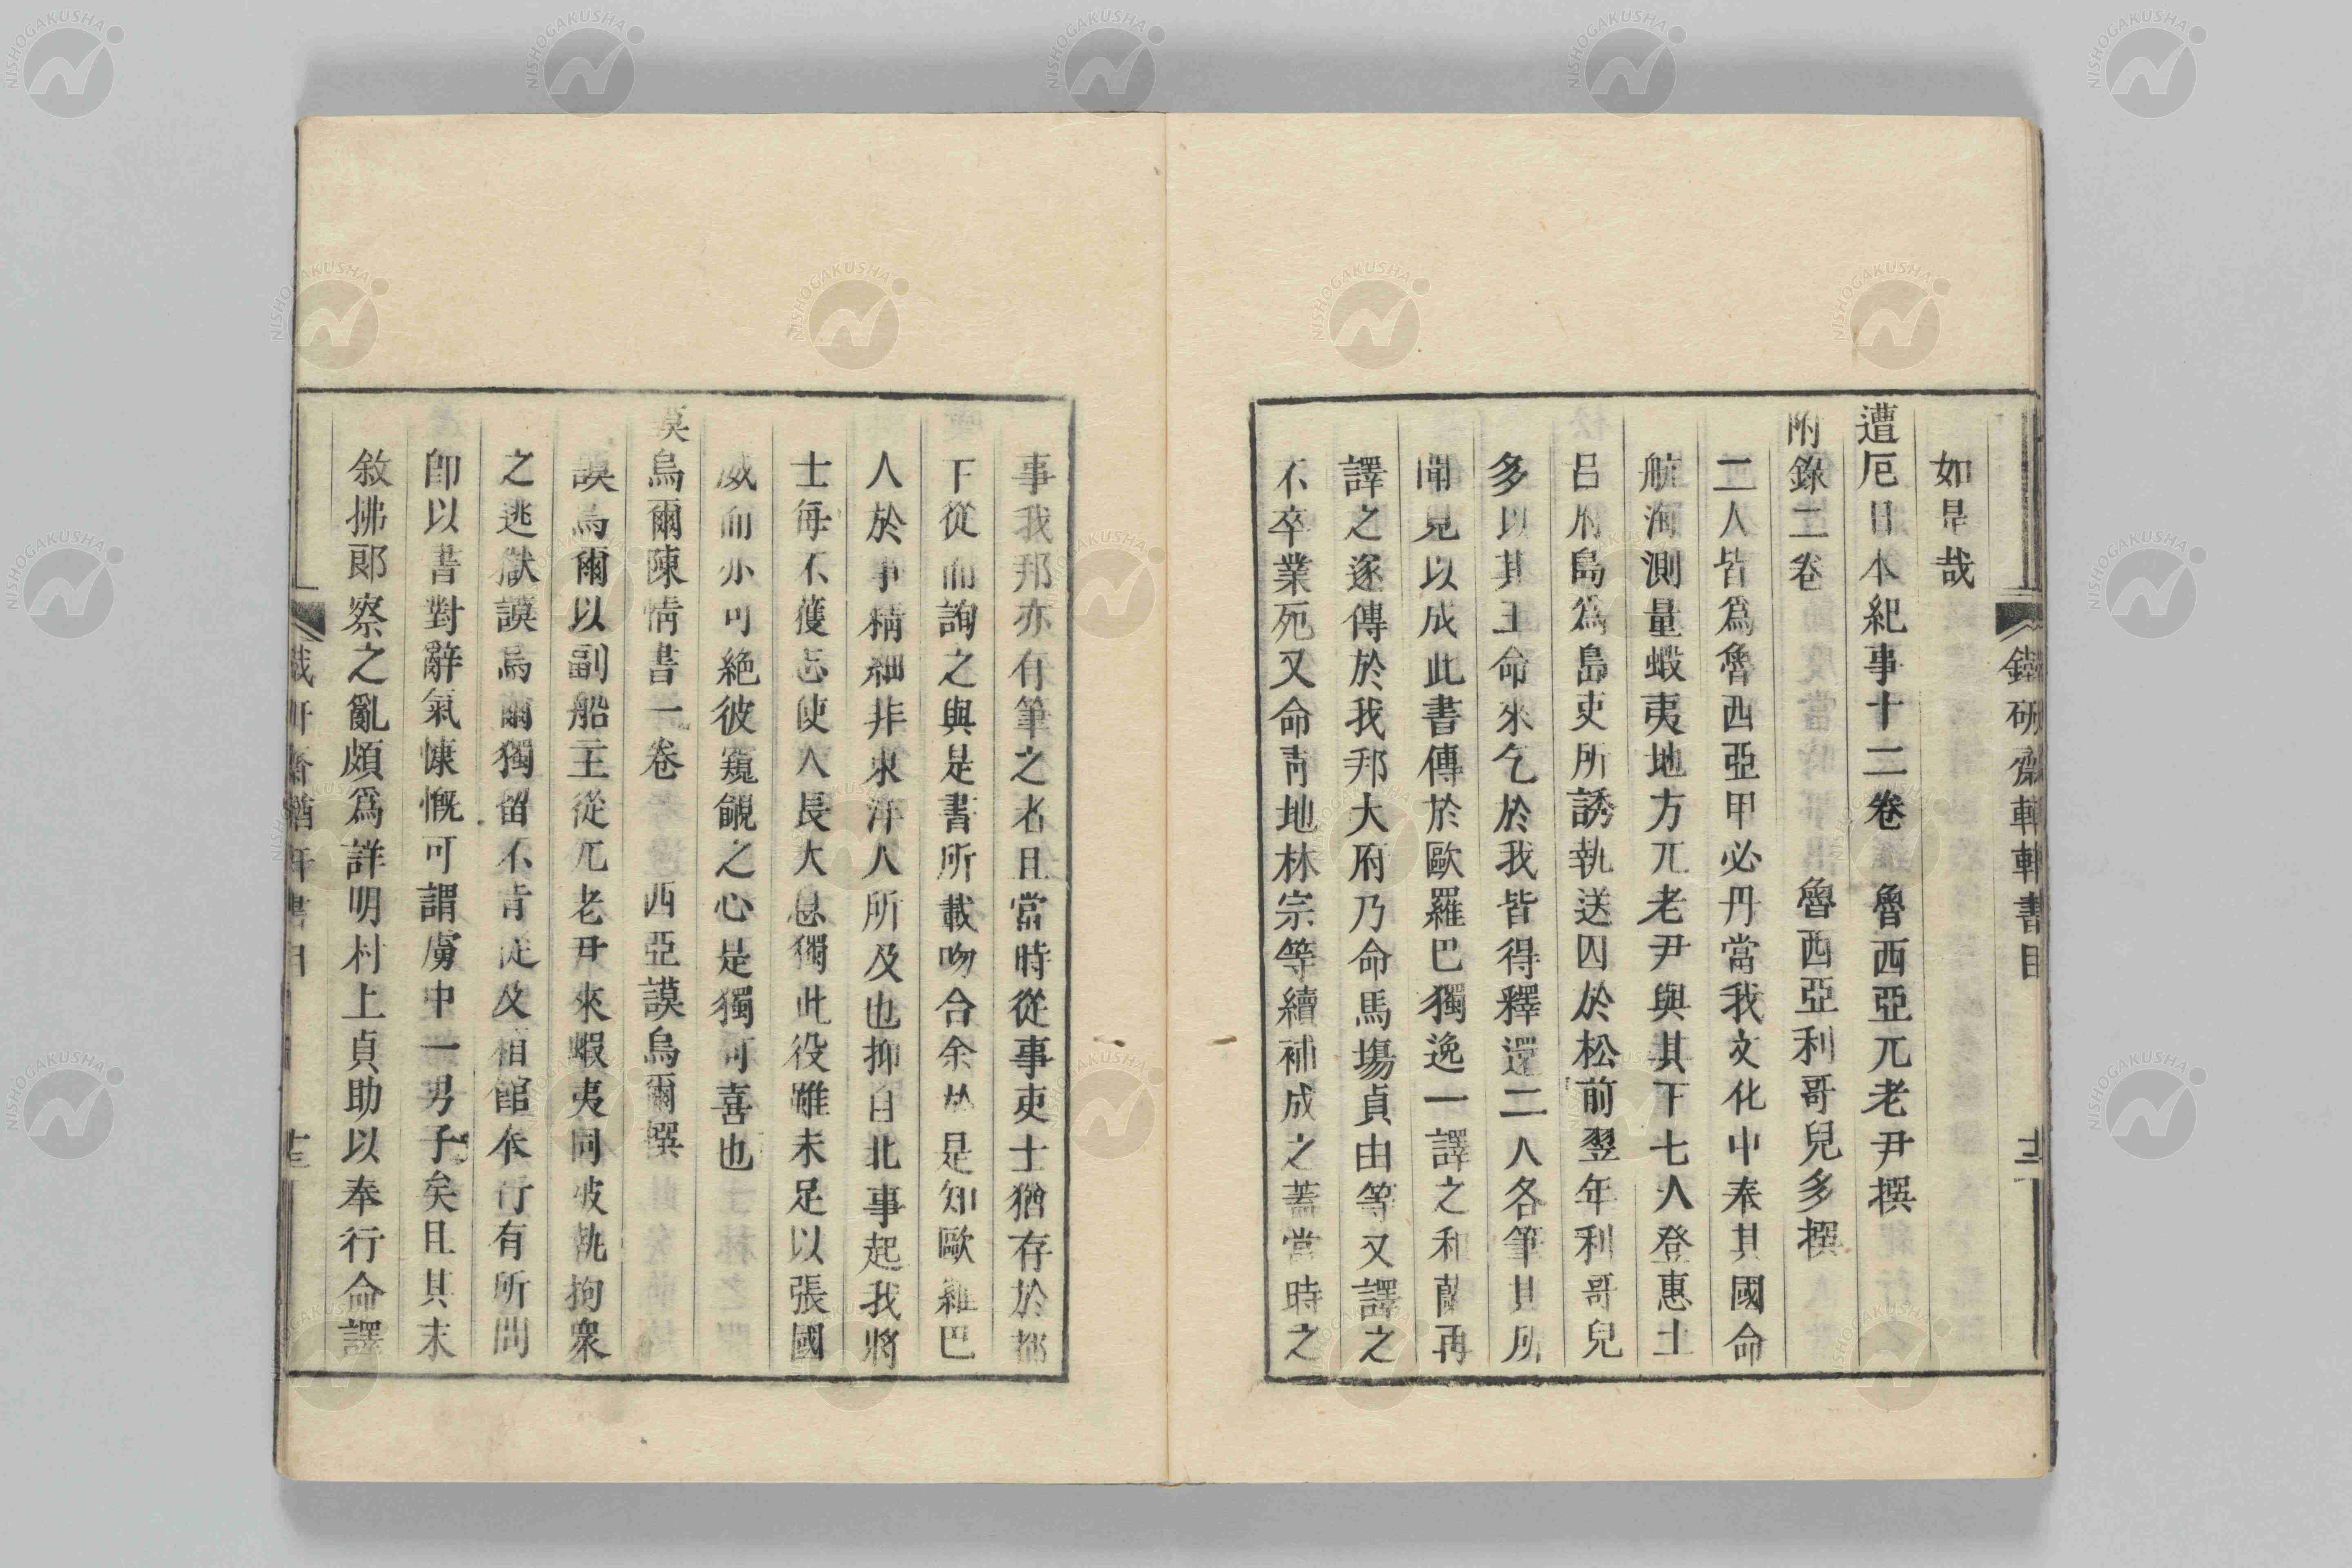 鐵研齋輶軒書目
十二
如是哉
遭厄日本紀事十二卷　魯西亞兀老尹撰
附錄二卷　魯西亞利哥兒多撰
二人皆爲魯西亞甲必丹當我文化中奉其國命
航海測量蝦夷地方兀老尹與其下七人登惠土
呂府島爲島吏所誘執送囚於松前翌年利哥兒
多以其王命來乞於我皆得釋還二人各筆其所
聞見以成此書傳於歐羅巴獨逸一譯之和蘭再
譯之遂傳於我邦大府乃命馬塲貞由等又譯之
不卒業死又命靑地林宗等續補成之蓋當時之
事我邦亦有筆之者且當時從事吏士猶存於都
下從而詢之與是書所載吻合余於是知歐羅巴
人於事精細非東洋人所及也抑自北事起我將
士每不獲志使人長大息獨此役雖未足以張國
威而亦可絶彼窺覦之心是獨可喜也
莫烏爾陳情書一卷　西亞謨烏爾撰
謨烏爾以副船主從兀老尹來蝦夷同被執拘衆
之逃獄謨烏爾獨留不肯從及宿館本行有所問
卽以書對辭氣慷慨可謂虜中一男子矣且其末
敘拂郞察之亂頗爲詳明村上貞助以奉行命譯
十三